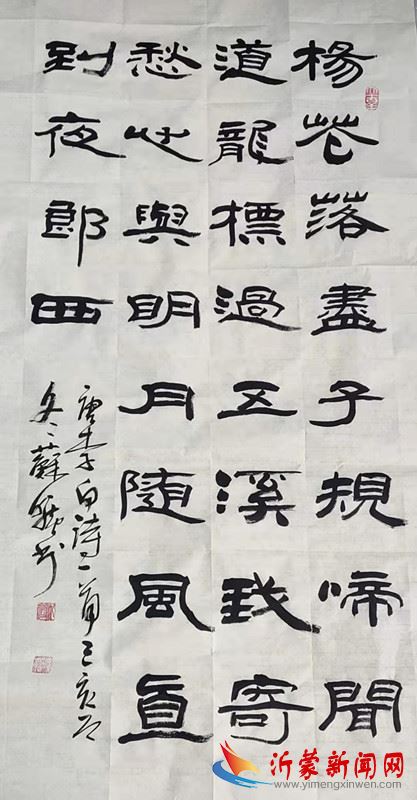 楊花落盡子規啼聞
道龍標過五溪我寄
愁心與明月隨風直
到夜郎西
唐李白诗一首己亥
冬蘇
沂蒙新闻网
www.yimengxinwen.com